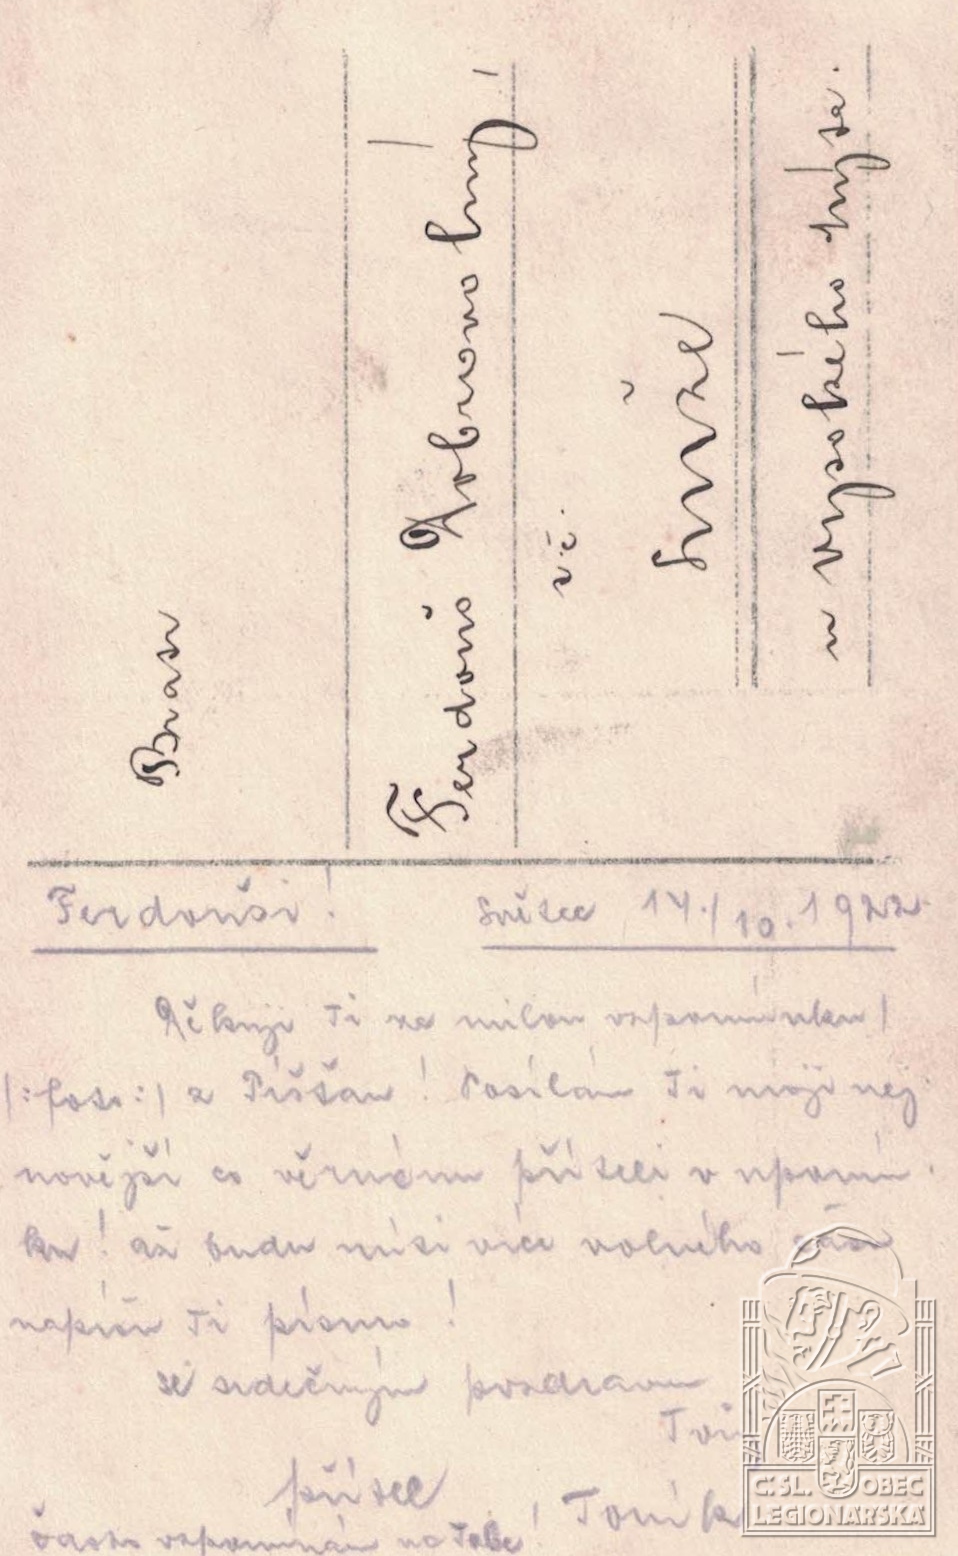 Bratr
Ferdoš Dobrovolný
v č.
Svrže
u vysokého mýta.
Ferdouši!
Světec 14./10. 1922.
Děkuji Ti za milou vzpomínku
/:foto:/ z Píšťan! Posílám Ti moji nej
novější co věrnému příteli v upomín
ku! až budu míti více volného času
napíši Ti písmo!
se srdečným pozdravem
Tvůj
přítel
Toník
často vzpomínám na Tebe!
C.SL. OBEC
LEGIONÁRSKÁ